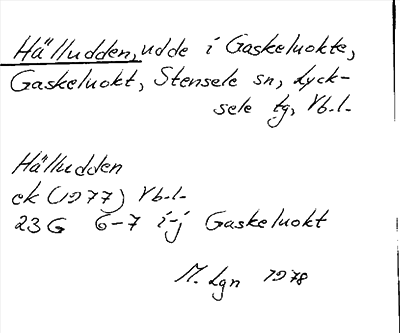 Hälludden, udde i Gaskeluokte,
Gaskeluokt, Stensele sn, Lyck-
sele tg, Vb.l.
Hälludden
ek (1977) Vb.l.
23G 6-7 i-j Gaskeluokt
M. Lgn 1978